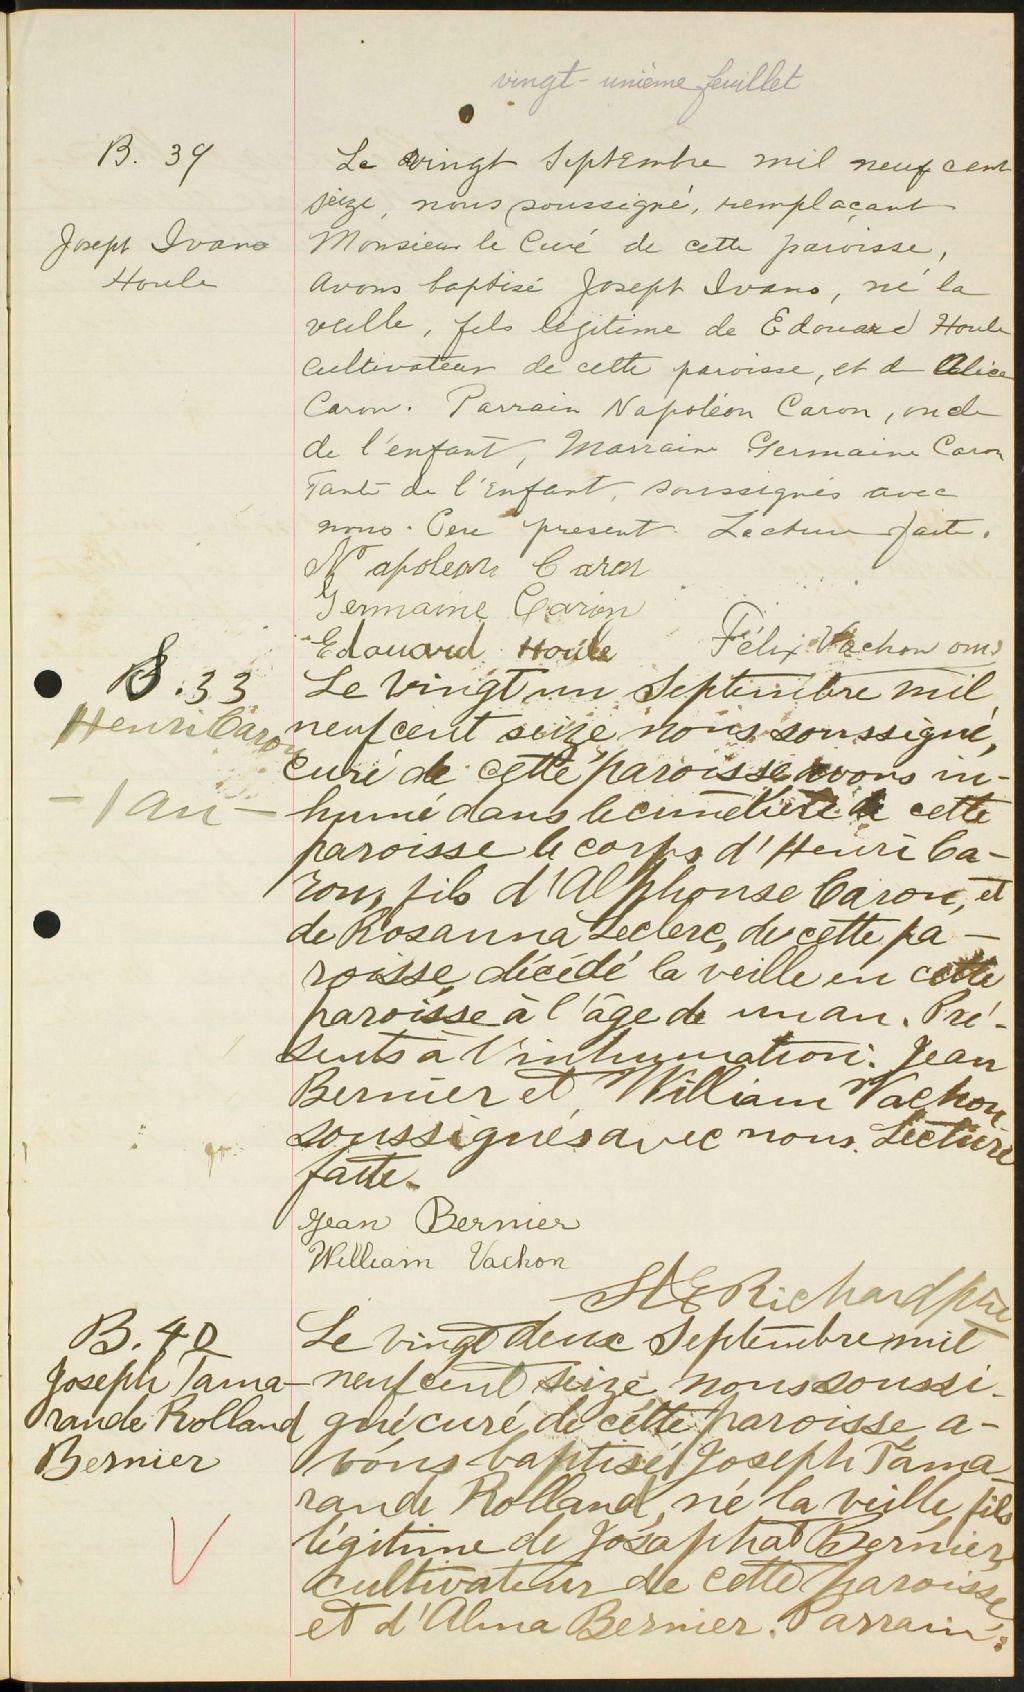 vingt-unième feuillet
B. 39
Joseph Ivano
Houle
Le vingt Septembre mil neuf cent
seize, nous soussigné, remplaçant
Monsieur le Curé de cette paroisse,
avons baptisé Joseph Ivano, né la
veille, fils légitime de Edouard Houle
cultivateur de cette paroisse, et d Alice
Caron. Parrain Napoléon Caron, oncle
de l'enfant, Marraine Germaine Caron
Tante de l'Enfant, soussignés avec
nous. Père présent Lecture faite.
Napoleon Caron
Germaine Caron
Edouard Houle Félix Vachon omi
S. 33
Henri Caron
- 1 an -
Le vingt un Septembre mil
neuf cent seize nous soussigné,
curé de cette paroisse avons in-
humé dans le cimetière de cette
paroisse le corps d'Henri Ca-
ron, fils d'Alphonse Caron, et
de Rosanna Leclerc, de cette pa-
roisse, décédé la veille en cette
paroisse à l'âge de un an. Pré-
sents à l'inhumation: Jean
Bernier et William Vachon
soussignés avec nous. Lecture
faite.
Jean Bernier
William Vachon
Richard ptre
B. 40
Joseph Tama-
rande Rolland
Bernier
Le vingt deux Septembre mil
neuf cent seize nous soussi-
gné curé de cette paroisse a-
vons baptisé Joseph Tama-
rande Rolland, né la veille, fils
légitime de Josaphat Bernier,
cultivateur de cette paroisse
et d'Alma Bernier. Parrain: